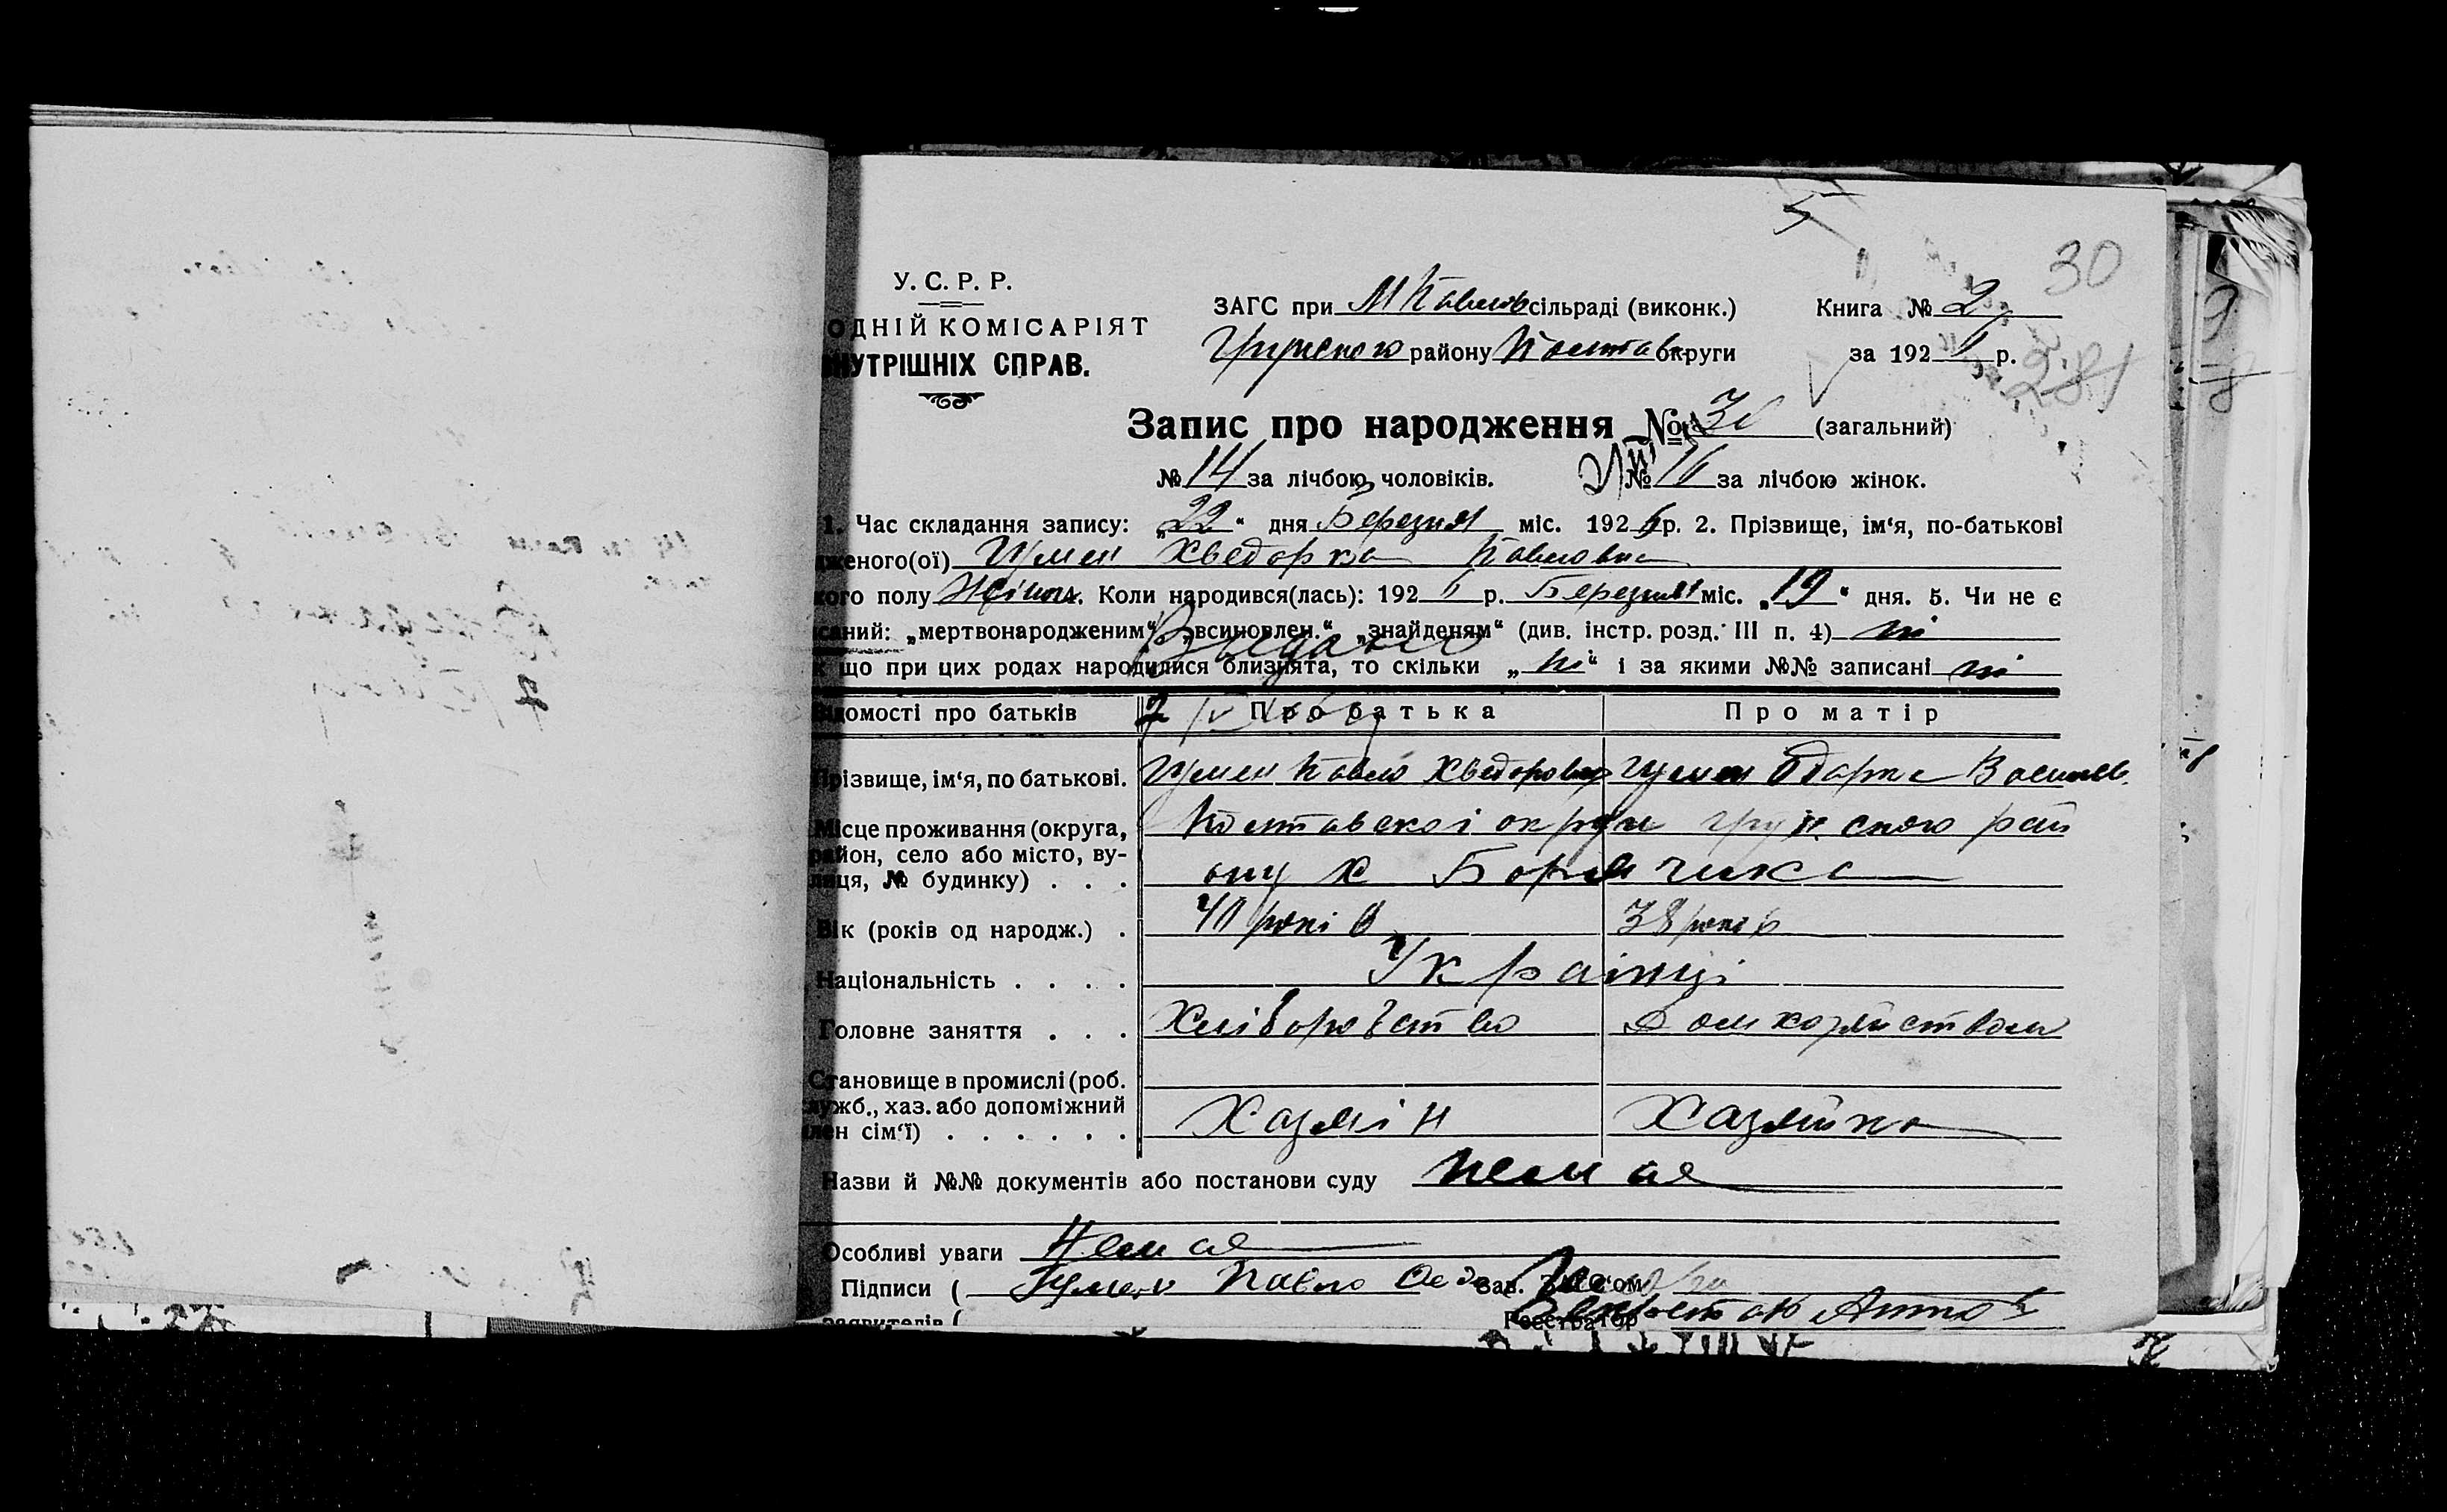 30
У. С. Р. Р.
ОДНІЙ КОМІСАРІЯТ
НУТРІШНІХ СПРАВ.
ЗАГС при М Павлов сільраді (виконк.)
Грунського району Полтавс округи
Книга № 2
за 1926 р.
281
Запис про народження № 30 (загальний)
№ 14 за лічбою чоловіків. № 16 за лічбою жінок.
1. Час складання запису: „22“ дня Березня міс. 1926 р. 2. Прізвище, ім‘я, по-батькові
дженого(ої) Гумен Хведорка Павловна
кого полу Жіноч. Коли народився(лась): 1926 р. Березня міс. „19“ дня. 5. Чи не є
саний: „мертвонародженим“ „всиновлен.“ „знайденям“ (див. інстр. розд. III п. 4) ні
к що при цих родах народилися близнята, то скільки „ні“ і за якими №№ записані ні
ідомості про батьків Про батька Про матір
Прізвище, ім‘я, по батькові. Гумен Павло Хведорович Гумен Одарка Василев.
Місце проживання (округа, Полтавскоі округи Грунского рай
район, село або місто, ву-
лиця, № будинку) . . . ону х
Вік (років од народж.) . 40 років 38 років
Національність . . . . Українці
Головне заняття . . . Хліборобство Домхозяйством
Становище в промислі (роб.
лужб., хаз. або допоміжний
лен сім‘ї) . . . . . . Хазяін Хазяйка
Назви й №№ документів або постанови суду немае
Особливі уваги Немае
Підписи ( Гумен Павло Зав. ЗАГС‘ом
заявителів ( Реєстратор